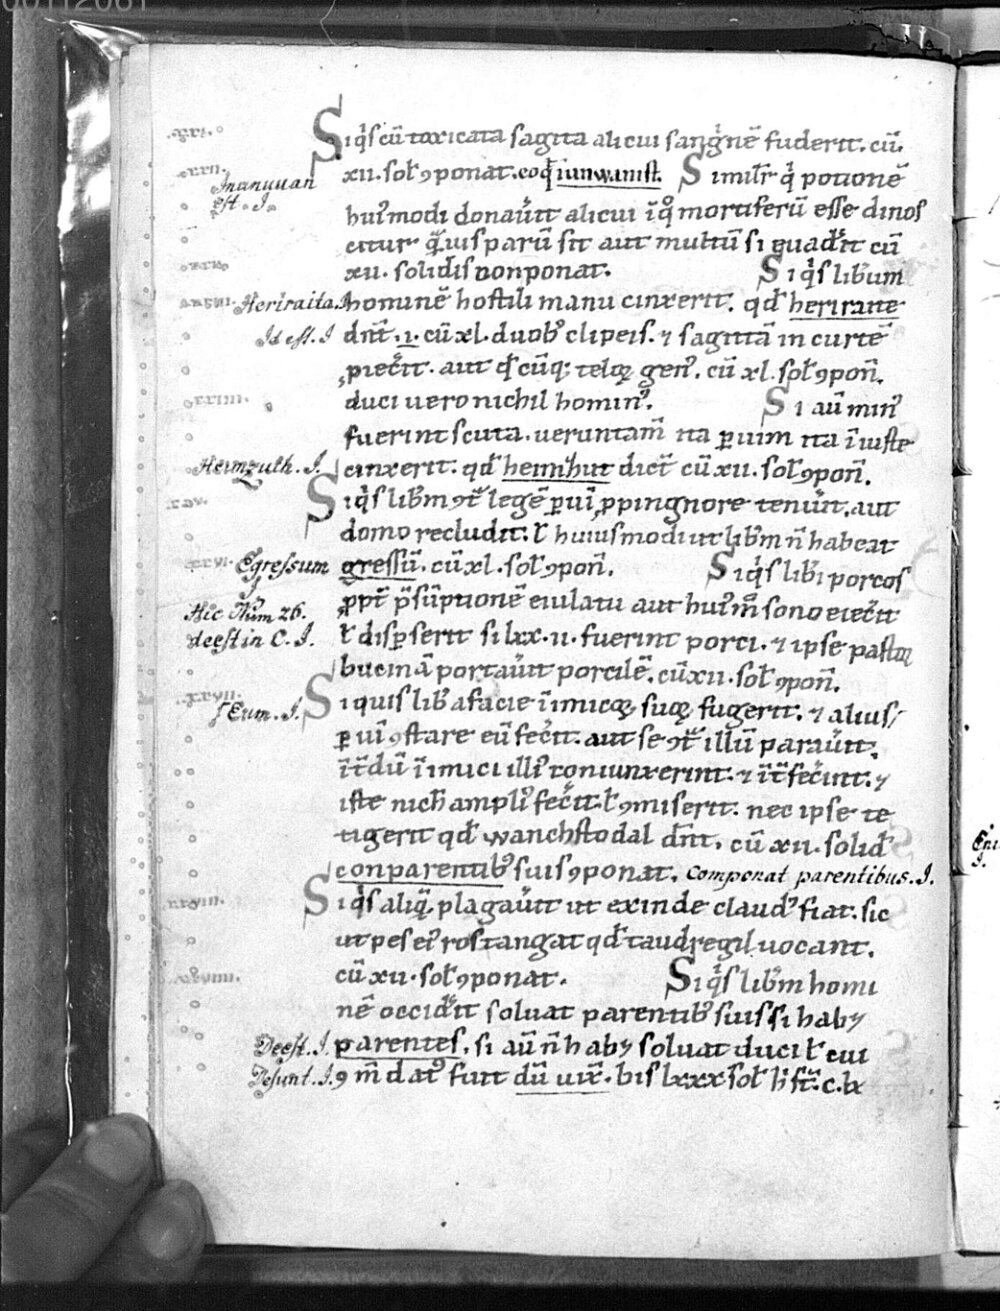 00112061
.xxi.
Siq̇s cū toxicata sagitta alicui sanġnē fuderit. cū
.xxii.
xii. sol̄ ꝯponat. eo qđ iunwanist. Simil̄r q̇ potionē
Inunuuan
est. I.
hui᾽modi donaũit alicui ī q̊ mortiferū esse dinos
citur q̃uis parū sit aut multū si euađit cū
xii. solidis conponat. Siq̇s liberum
Heriraita. I. hominē hostili manu cinxerit. qđ heriraite
Id est. I dn̄t .i. cū xl. duob᾽ clipeis. ⁊ sagittā in curtē
piec̄it. aut qđcūq; teloꝝ gen᾽. cū xl. sol̄ ꝯpon̄.
xxiiii. duci uero nichil homin᾽. Si aū min᾽
fuerint scuta. ueruntam̄ ita ꝑ uim ita īiuste
Heimzuth. I. cinxerit. qđ heimhut dict̄ cū xii. sol̄ ꝯpon̄.
xxv. Siq̇s lib̄m ꝯt̄ legē ꝑ uī ꝓpingnore tenũit. aut
domo recludit. ł huiusmodi ut lib̄m n̄ habeat
xxvi. Egressum I gressū. cū xl. sol̄ ꝯpon̄. Siq̇s lib̄i porcos
Hic Num 26.
deest in C. I.
ꝓpt̄ p̄sūptionē eiulatu aut hui᾽m̄ sono eiec̄it
ł disꝑserit si lxx. ii. fuerint porci. ⁊ ipse pastoꝝ
bucinā portaũit porcilē. cū xii. sol̄ ꝯpon̄.
xxvii. Siquis lib᾽ a facie īimicoꝝ suoꝝ fugerit. ⁊ alius
Eum. I.
ꝑ uī ꝯstare eū fec̄it. aut se ꝯt̄ illū paraũit.
īt̄dū īimici illi᾽ coniunxerint. ⁊ īt̄fec̄int. ⁊
iste nich̄ ampli᾽ fec̄it. ł ꝯmiserit. nec ipse te
tigerit qđ wanchstodal dn̄t. cū xii. solid̄
conparentib᾽ suis ꝯponat. Componat parentibus. I.
xxviii. Siq̇s aliq̃ plagaũit ut exinde claud᾽ fiat. sic
ut pes ei᾽ ros tangat qđ taudregil uocant.
cū xii. sol̄ ꝯponat. Siq̇s lib̄m homi
nē occiđit soluat parentib᾽ suis si habꝫ
Deest. I. parentes. si aū n̄ habꝫ soluat duci ł cui
Desunt. I. ꝯm̄dat᾽ fuit dū uix̄. bis lxxx sol̄ h̄ st̄. c. lx